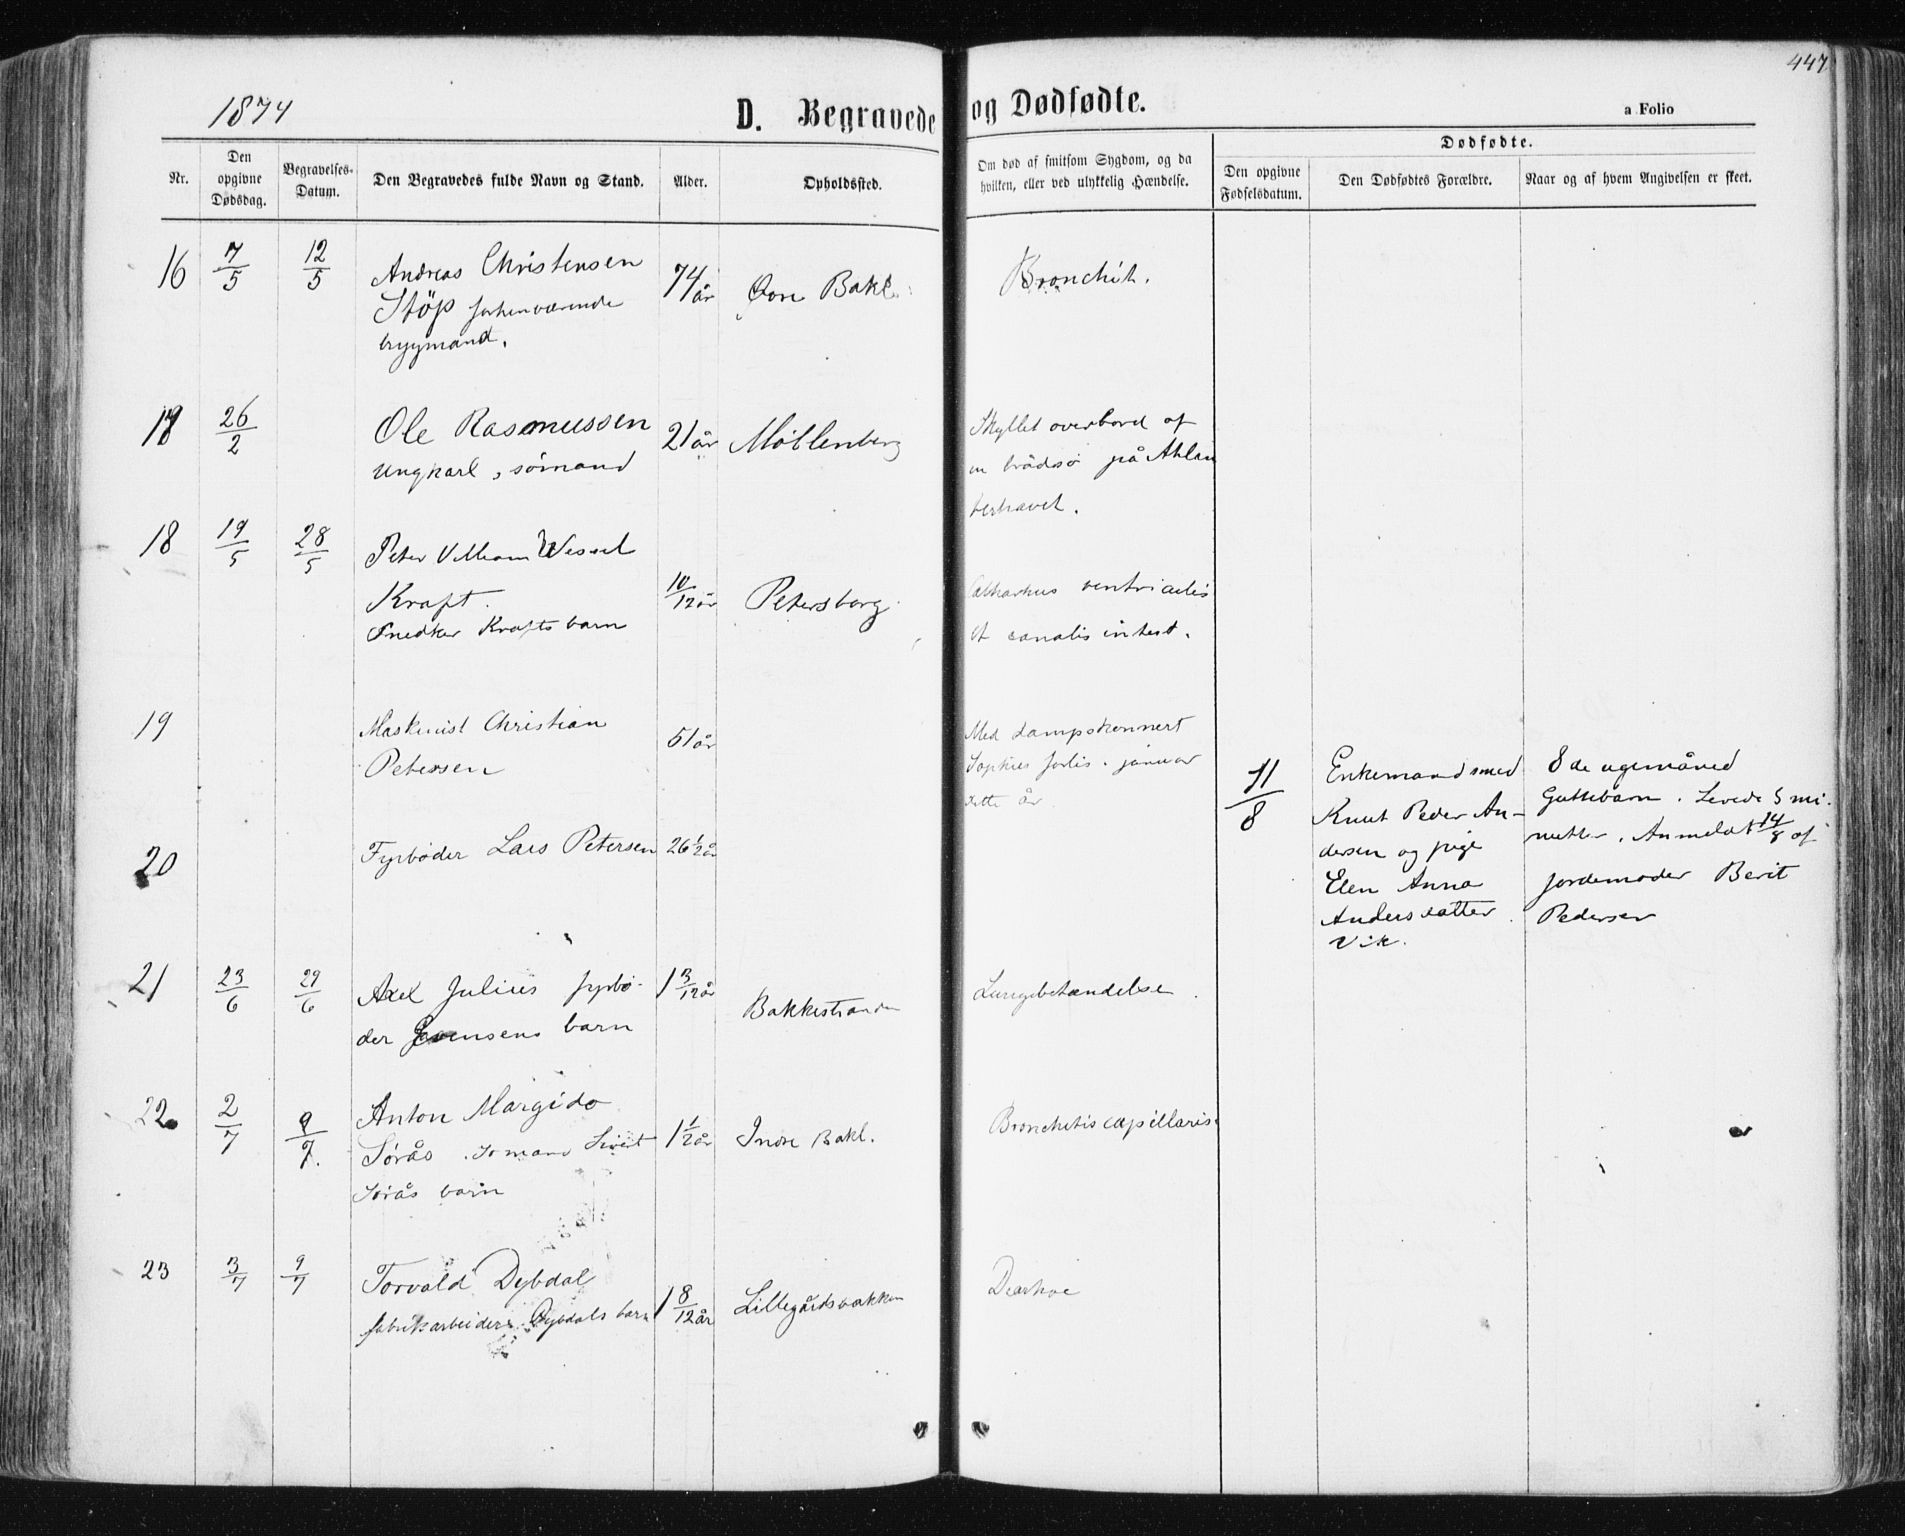 447
1874
D. Begravede og Dødfødte.
a Folio
Nr.
Den opgivne Dødsdag.
Begravelses-Datum.
Den Begravedes fulde Navn og Stand.
Alder.
Opholdssted.
Om død af smitsom Sygdom, og da hvilken, eller ved ulykkelig Hændelse.
Dødfødte.
Den opgivne Fødselsdatum.
Den Dødfødtes Forældre.
Naar og af hvem Angivelsen er skeet.
16 7/5 12/5 Andreas Christensen 74 år Øvre Bakl. Bronchit.
Støp forhenværende
bygmand.
17 26/2 Ole Rasmussen 21 år Møllenberg Skyllet overbord af
ungkarl, sømand en brådsø på Atlan
terhavet.
18 19/5 28/5 Peter Villiam Wessel
Kraft. 10/12 år Petersborg. Catharhus ventriculis
Snedker Krafts barn et canalis intest.
19 Maskinist Christian 51 år Med dampskonnert
Petersen Sophies forlis i januar
dette år
20 Fyrbøder Lars Petersen 26 1/2 år
11/8 Enkemand smed
Knut Peder An-
dersen og pige
Elen Anna
Andersdatter
Vik.
8de ugemåned
Guttebarn. Levede 5 mi-
nutter. Anmeldt 14/8 af
jordemoder Berit
Pedersen
21 23/6 29/6 Axel Julius fyrbø- 1 3/12 år Bakkestranden Lungebetændelse
der Jensens barn
22 2/7 9/7. Anton Margido 1 1/2 år Indre Bakl. Bronchitis capillaris.
Sørås. Sømand Sivert
Sørås barn
23 3/7 9/7 Torvald Dybdal 1 8/12 år Lillegårdsbakken Diarhoe
fabrikarbeider Dybdals barn